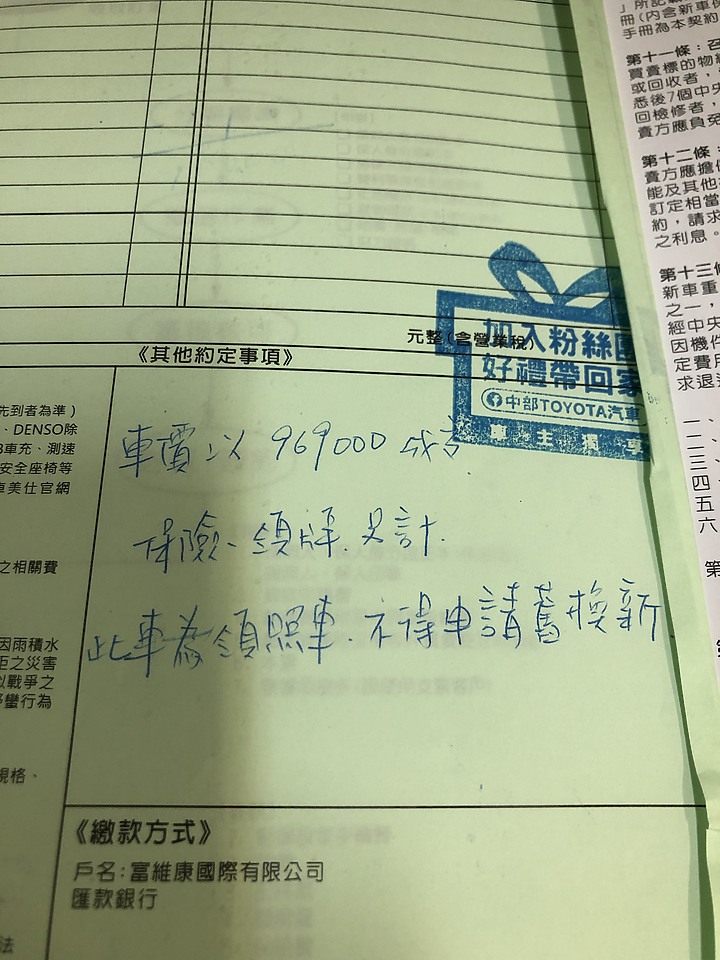 元整(含營業稅)
加入粉絲團
好禮帶回家
中部TOYOTA汽車
車主獨享
《其他約定事項》
先到者為準)
、DENSO除
車充、測速
安全座椅等
車美仕官網
之相關費
因雨積水
之災害
戰爭之
蠻行為
規格、
法
車價以 969000 成
保險、領牌另計.
此車為領照車.不得申請舊換新
《繳款方式》
戶名:富維康國際有限公司
匯款銀行
」所記載
冊(內含新車保
手冊為本契約
第十一條:召
買賣標的物
或回收者,
悉後7個中央
回檢修者,
賣方應負免
第十二條:
賣方應擔
能及其他
訂定相當
約,請求
之利息。
第十三條
新車重
之一,
經中央
因機件
定費用
求退
一、
二、
三、
四、
五、
六、
第